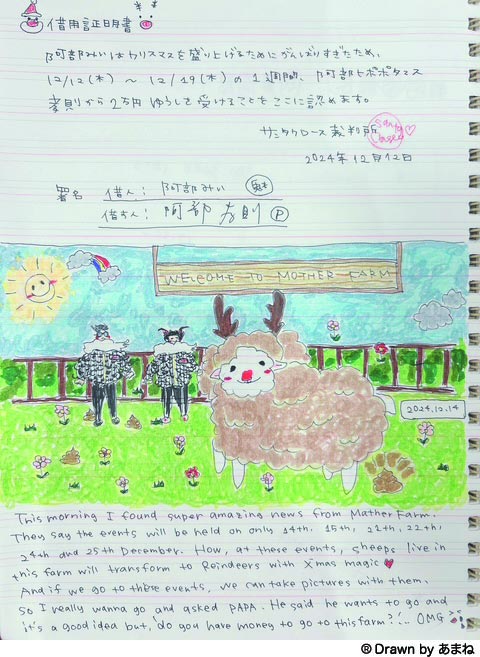 借用証明書
阿部みいはクリスマスを盛り上げるためにがんばりすぎたため、
12/12(木) ～ 12/19(木)の1週間、阿部ヒポポタマス
孝則から2万円ゆうしを受けることをここに認めます。
サンタクロース裁判所
Santa Clause
2024年12月12日
署名 借人: 阿部みい
阿部孝則 P
WELCOME TO MOTHER FARM
2024.12.14
This morning I found super amazing news from Mother Farm.
They say the events will be held on only 14th. 15th, 21th, 22th,
24th and 25th December. How, at these events, sheeps live in
this farm will transform to Reindeers with X'mas magic♥
And if we go to these events, we can take pictures with them.
So I really wanna go and asked PAPA. He said he wants to go and
it's a good idea but, do you have money to go to this farm?!... OMG
® Drawn by あまね